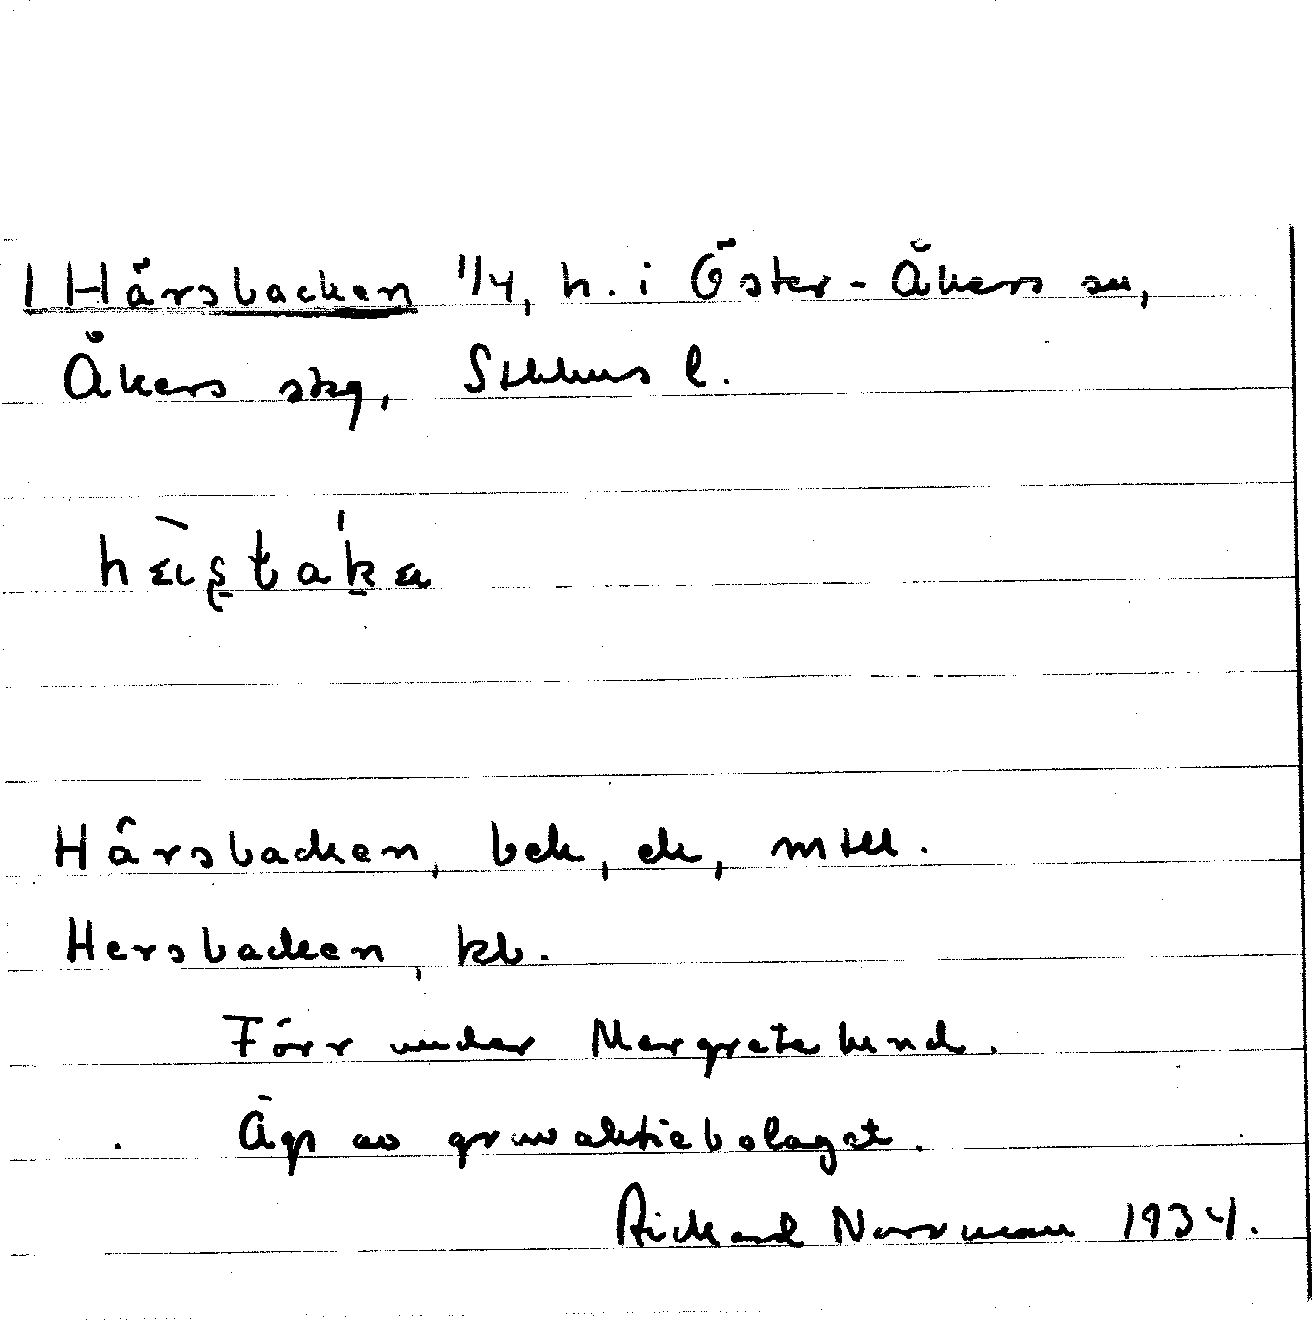 1 Härsbacken 1/4, h. i Öster-Åkers sn,
Åkers skg, Sthlms l.
Hårsbacken, bek, ek, mtll.
Hersbacken, kb.
Förr under Margretelund.
Ägs av gruvaktiebolaget.
Rickard Norrman 1934.